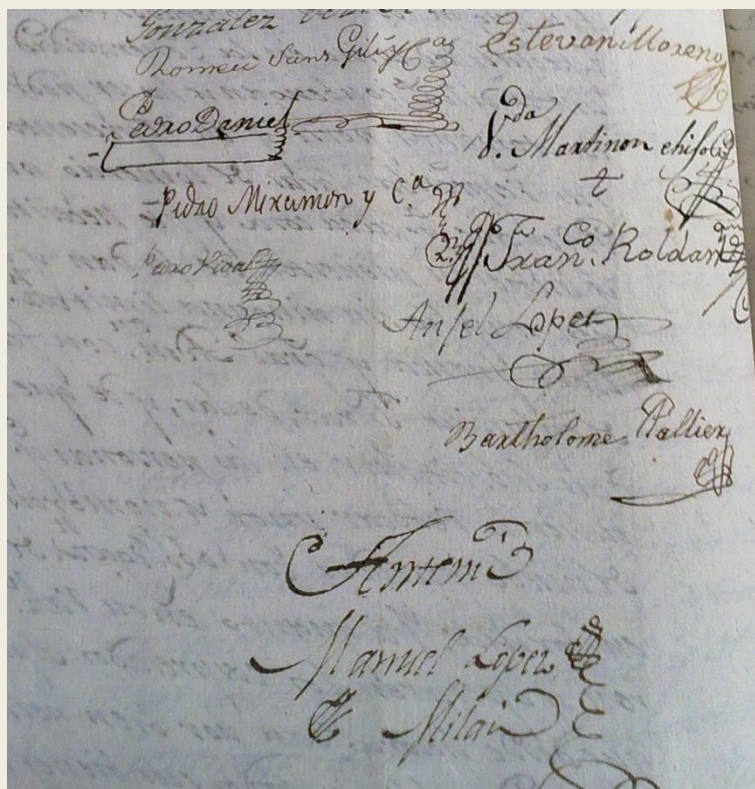 Gonzalez
Romeu Sans Gil y Cª
Estevan Moreno
Pedro Daniel
Vda
V. Martinon e hifos
Pedro Miramon y C.ª
Franco. Roldan
Pedro Vidal
Ansel Lopez
Bartholome Pallier
Antemi
Manuel Lopez
Milan